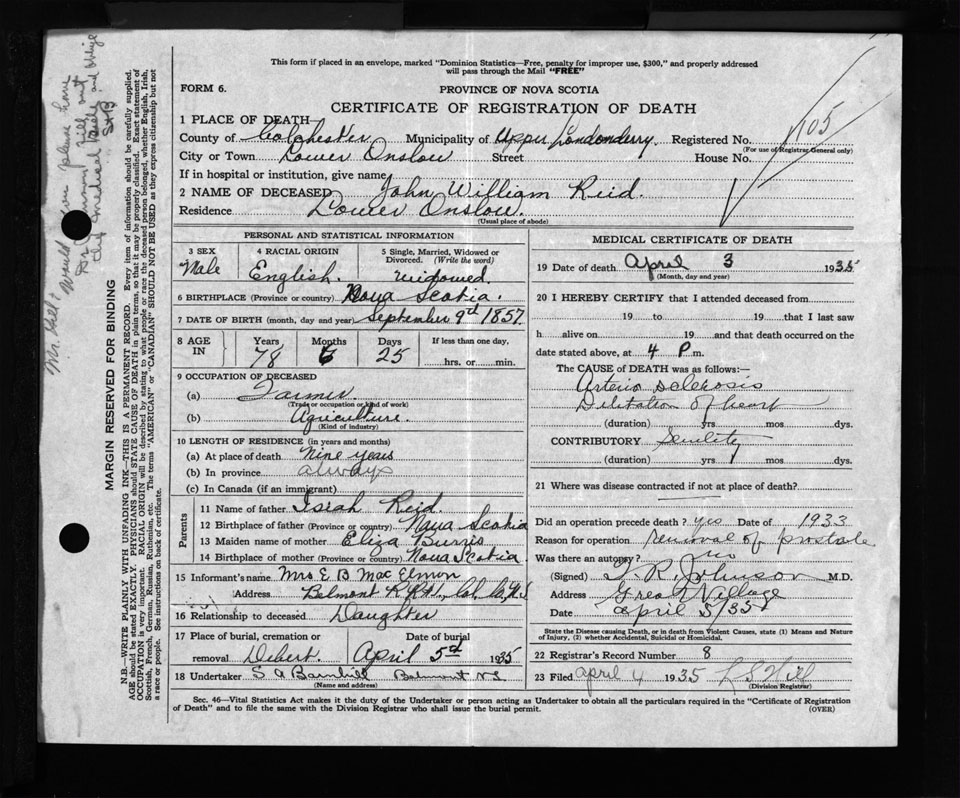 This form if placed in an envelope, marked "Dominion Statistics—Free, penalty for improper use, $300," and properly addressed
will pass through the Mail "FREE"
FORM 6.
PROVINCE OF NOVA SCOTIA
CERTIFICATE OF REGISTRATION OF DEATH
1 PLACE OF DEATH
County of Colchester Municipality of Upper Londonderry Registered No. 1105
(For use of Registrar General only)
City or Town Lower Onslow Street House No.
If in hospital or institution, give name
2 NAME OF DECEASED John William Reid.
Residence Lower Onslow.
(Usual place of abode)
PERSONAL AND STATISTICAL INFORMATION
3 SEX Male
4 RACIAL ORIGIN English.
5 Single, Married, Widowed or Divorced. (Write the word) widowed.
6 BIRTHPLACE (Province or country) Nova Scotia.
7 DATE OF BIRTH (month, day and year) September 9th 1857.
8 AGE IN Years 78 Months 6 Days 25 If less than one day, hrs. or min.
9 OCCUPATION OF DECEASED
(a) Farmer
(Trade or occupation or kind of work)
(b) Agriculture.
(Kind of industry)
10 LENGTH OF RESIDENCE (in years and months)
(a) At place of death nine years
(b) In province always
(c) In Canada (if an immigrant)
Parents
11 Name of father Isiah Reid.
12 Birthplace of father (Province or country) Nova Scotia
13 Maiden name of mother Eliza Burris
14 Birthplace of mother (Province or country) Nova Scotia
15 Informant's name Mrs E B Mac Elmon
Address Belmont
16 Relationship to deceased Daughter
17 Place of burial, cremation or removal Debert. Date of burial April 5th 1935
18 Undertaker S A Barnhill Belmont NS
(Name and address)
MEDICAL CERTIFICATE OF DEATH
19 Date of death April 3 1935
(Month, day and year)
20 I HEREBY CERTIFY that I attended deceased from
19 to 19 that I last saw
h alive on 19 and that death occurred on the
date stated above, at 4 P m.
The CAUSE of DEATH was as follows:—
Arterio sclerosis
Dilitation of heart
(duration) yrs mos dys.
CONTRIBUTORY Senility
(duration) yrs mos dys.
21 Where was disease contracted if not at place of death?
Did an operation precede death? yes Date of 1933
Reason for operation removal of prostate
Was there an autopsy? no
(Signed) T. R. Johnson M.D.
Address Great Village
Date april 5/35
State the Disease causing Death, or in death from Violent Causes, state (1) Means and Nature
of Injury, (2) whether Accidental, Suicidal or Homicidal.
22 Registrar's Record Number 8
23 Filed april 4 1935 L S Hill
(Division Registrar)
Sec. 46—Vital Statistics Act makes it the duty of the Undertaker or person acting as Undertaker to obtain all the particulars required in the "Certificate of Registration
of Death" and to file the same with the Division Registrar who shall issue the burial permit.
(OVER)
MARGIN RESERVED FOR BINDING
N.B.—WRITE PLAINLY WITH UNFADING INK—THIS IS A PERMANENT RECORD. Every item of information should be carefully supplied.
AGE should be stated EXACTLY. PHYSICIANS should STATE CAUSE OF DEATH in plain terms, so that it may be properly classified. Exact statement of
OCCUPATION is very important. RACIAL ORIGIN will be described by stating to what people or race the deceased person belonged, whether English, Irish,
Scottish, French, German, Russian, Ruthenian, etc. The terms "AMERICAN" or "CANADIAN" SHOULD NOT BE USED as they express citizenship but not
a race or people. See instructions on back of certificate.
Mr. Hill:
Would you please have
Dr Johnson fill out
this medical and oblige
SAB